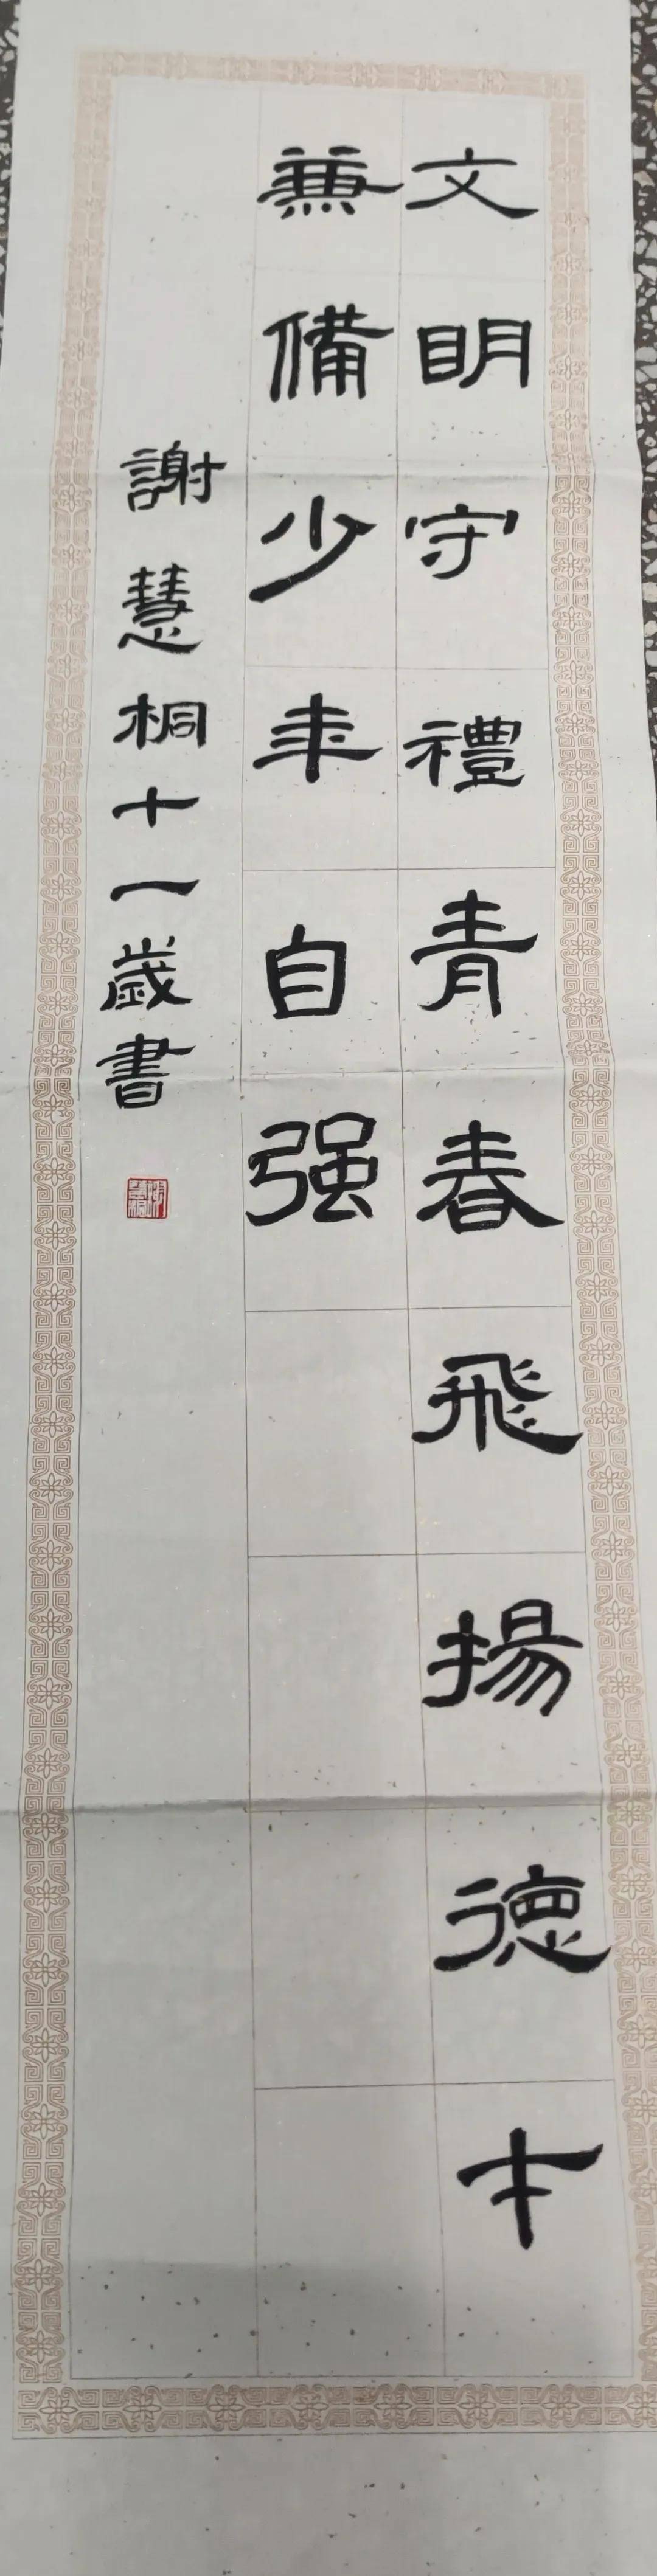 文明守禮青春飛揚德才
兼備少年自强
謝慧桐十一歲書